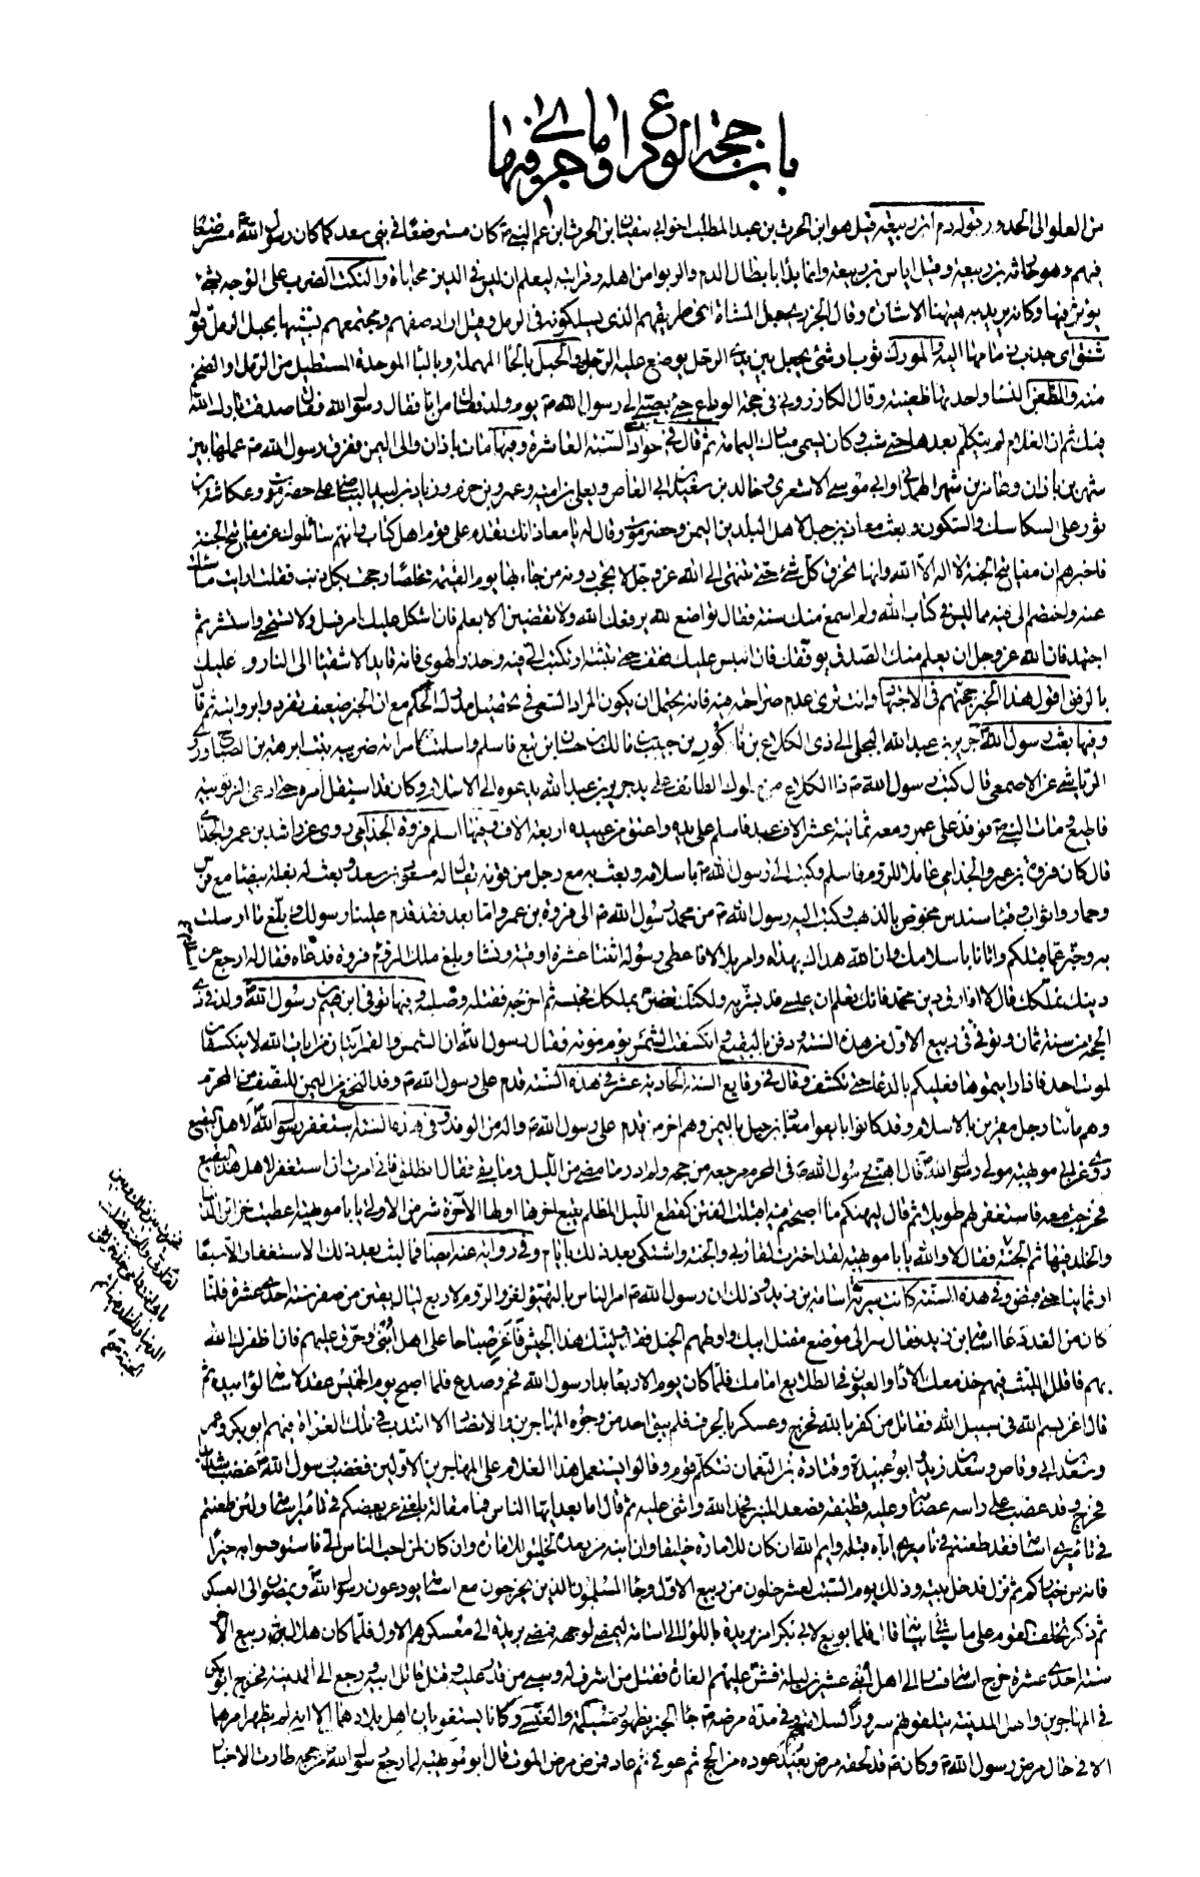 باب حجة الوداع وما جرى فيها الى
من العلو الى الحدور قوله دم ابن ربيعة قيل هو ابن الحرث بن عبد المطلب اخو ابي سفيان ابن الحرث ابن عم النبي ص كان مسترضعا في بني سعد كما كان رسول الله مسترضعا
فيهم وهو حارثة بن ربيعة وقيل اياس بن ربيعة وانما بدأ بابطال الدم والربوا من اهله وقرابته ليعلم ان ليس في الدين محاباة والنكت الضرب على الوجه بشيء
يؤثر فيها وكانه يريد به هيهنا الاشارة وقال الجزري حبل المشاة اى طريقهم الذى يسلكونه في الرمل وقيل اراد صفهم ومجتمعهم تشبيها بحبل الرمل قوله
شنق اى جذب زمامها اليه المورك ثوب او شئ يجعل بين يدى الرحل يوضع عليه الرجل والحبل بالحاء المهملة وبالباء الموحدة المستطيل من الرمل او الضخم
منه والظعن النساء واحدتها ظعينة وقال الكازروني في حجة الوداع جئ بصبي الى رسول الله ص يوم ولد فقال من انا فقال رسول الله فقال صدقت بارك الله
فيك ثم ان الغلام لم يتكلم بعدها حتى شب وكان يسمى مبارك اليمامة ثم قال في حوادث السنة العاشرة وفيها مات باذان والى اليمن ففرق رسول الله ص عملها بين
شهر بن باذان وعامر بن شهر الهمداني وابي موسى الاشعرى وخالد بن سعيد بن العاص ويعلى بن امية وعمرو بن حزم وزياد بن لبيد البياضي على حضرموت وعكاشة بن
ثور على السكاسك والسكون وبعث معاذ بن جبل لاهل البلدين اليمن وحضرموت وقال له يا معاذ انك تقدم على قوم اهل كتاب وانهم سائلوك عن مفاتيح الجنة
فاخبرهم ان مفاتيح الجنة لا اله الا الله وانها تخرق كل شئ حتى تنتهى الى الله عز وجل لا تحجب دونه من جاء بها يوم القيمة مخلصا رجحت بكل ذنب فقلت ارايت ما سئلت
عنه واختصم الى فيه مما ليس في كتاب الله ولم اسمع منك سنة فقال تواضع لله يرفعك الله ولا تقضين الا بعلم فان اشكل عليك امر فسل ولا تستحي واستشر ثم
اجتهد فان الله عز وجل ان يعلم منك الصدق يوفقك فان التبس عليك فقف حتى تثبته او تكتب الى فيه واحذر الهوى فانه قايد الاشقياء الى النار وعليك
بالرفق اقول هذا الخبر حجتهم في الاجتهاد وانت ترى عدم صراحته فيه فانه يحتمل ان يكون المراد السعى في تحصيل مدرك الحكم مع ان الخبر ضعيف تفردوا بروايته ثم قال
وفيها بعث رسول الله جرير بن عبد الله البجلي الى ذى الكلاع بن ناكور بن حبيب بن مالك بن حسان بن تبع فاسلم واسلمت امراته ضريبة بنت ابرهة بن الصباح وروى
الرياشي عن الاصمعى قال كتب رسول الله ص ذا الكلاع من ملوك الطائف على يد جرير بن عبد الله يدعوه الى الاسلام وكان قد استفحل امره حتى ادعى الربوبية
فاطيع ومات النبي ص فوفد على عمر ومعه ثمانية عشر الاف عبد فاسلم على يده واعتق من عبيده اربعة الاف وفيها اسلم فروة الجذامي روى عن راشد بن عمرو الجذامي
قال كان فروة بن عمرو الجذامي عاملا للروم فاسلم وكتب الى رسول الله ص باسلامه وبعث به مع رجل من قومه يقال له مسعود بن سعد وبعث له بغلة بيضاء مع فرس
وحمار واثواب وقباء سندس مخوص بالذهب وكتب اليه رسول الله ص من محمد رسول الله ص الى فروة بن عمرو اما بعد فقد قدم علينا رسولك وبلغ ما ارسلت
به وخبر عما قبلكم واتانا باسلامك وان الله هداك بهداه وامر بلالا فاعطى رسوله اثنتا عشرة اوقية ونشا وبلغ ملك الروم اسلام فروة فدعاه فقال له ارجع عن
دينك نملكك قال لا افارق دين محمد فانك تعلم ان عيسى قد بشر به ولكنك تضن بملكك فحبسه ثم اخرجه فقتله وصلبه وفيها توفى ابراهيم ابن رسول الله ولد في ذى
الحجة من سنة ثمان وتوفى في ربيع الاول من هذه السنة ودفن بالبقيع وانكسفت الشمس يوم موته فقال رسول الله ان الشمس والقمر آيتان من ايات الله لا ينكسفان
لموت احد فاذا رايتموها فعليكم بالدعاء حتى تكشف وقال في وقايع السنة الحادية عشر في هذه السنة قدم على رسول الله ص وفد النخع من اليمن للنصف من المحرم
وهم مأتا رجل مقرين بالاسلام وقد كانوا بايعوا معاذ بن جبل باليمن وهم اخر من قدم على رسول الله ص واله من الوفود وفي هذه السنة استغفر رسول الله ص لاهل البقيع
روى عن ابي مويهبة مولى رسول الله ص قال اهبنى رسول الله ص في المحرم مرجعه من حجه ولم ادر ما مضى من الليل وما بقى فقال انطلق فاني امرت ان استغفر لاهل هذا البقيع
فخرجت معه فاستغفر لهم طويلا ثم قال ليهنكم ما اصبحتم فيه اقبلت الفتن كقطع الليل المظلم يتبع اخرها اولها الآخرة شر من الاولى يا با مويهبة اعطيت خزائن الدنيا
والخلد فيها ثم الجنة فقال لا والله يا با مويهبة لقد اخترت لقاء ربي والجنة واشتكى بعد ذلك بايام وفي رواية عنه ايضا فما لبث بعد ذلك الاستغفار الا سبعا
او ثمانيا حتى قبض وفي هذه السنة كانت سرية اسامة بن زيد وذلك ان رسول الله ص امر الناس بالتهيؤ لغزو الروم لاربع ليال بقين من صفر سنة احدى عشرة فلما
كان من الغد دعا اسامة بن زيد فقال سر الى موضع مقتل ابيك واوطهم الخيل فقد وليتك هذا الجيش فاغر صباحا على اهل ابنى وحرق عليهم فان اظفرك الله
بهم فاقلل اللبث فيهم خذ معك الادلاء والعيون في الطلايع امامك فلما كان يوم الاربعاء بدا رسول الله فحم وصدع فلما اصبح يوم الخميس عقد لاسامة لواء بيده ثم
قال اغز بسم الله في سبيل الله فقاتل من كفر بالله فخرج وعسكر بالجرف فلم يبق احد من وجوه المهاجرين والانصار الا انتدب في تلك الغزاة فيهم ابو بكر وعمر
وسعد بن ابي وقاص وسعد بن زيد وابو عبيدة وقتادة بن النعمان فتكلم قوم وقالوا يستعمل هذا الغلام على المهاجرين الاولين فغضب رسول الله ص غضبا شديدا
فخرج وقد عصب على راسه عصابة وعليه قطيفة فصعد المنبر فحمد الله واثنى عليه ثم قال اما بعد ايها الناس فما مقالة بلغني عن بعضكم في تامير اسامة ولئن طعنتم
في تاميري اسامة فقد طعنتم في تاميرى اباه قبله وايم الله ان كان للامارة خليقا وان ابنه من بعده لخليق للامارة وان كان لمن احب الناس الى فاستوصوا به خيرا
فانه من خياركم ثم نزل فدخل بيته وذلك يوم السبت لعشر خلون من ربيع الاول وجاء المسلمون الذين يخرجون مع اسامة يودعون رسول الله ويمضون الى العسكر
ثم ذكر تخلف القوم على ما سياتي بيانه قال فلما بويع لابي بكر امر بريدة باللواء الى اسامة ليمضى لوجهه فمضى بريدة الى معسكرهم الاول فلما كان هلال ربيع الآخر
سنة احدى عشرة خرج اسامة فسار الى اهل ابنى عشرين ليلة فشن عليهم الغارة فقتل من اشرف له وسبى من قدر عليه وقتل قاتل ابيه ورجع الى المدينة فخرج ابو بكر
في المهاجرين واهل المدينة يتلقونهم سرورا لسلامتهم وفي مدة مرضه ص جاء الخبر بظهور مسيلمة والعنسي وكانا يستغويان اهل بلادهما الا انه لم يظهر امرهما
الا في حال مرض رسول الله ص وكان ص قد لحقه مرض بعيد عوده من الحج ثم عوفى ثم عاد فمرض مرض الموت قال ابو مويهبة لما رجع رسول الله ص من حجه طارت الاخبار